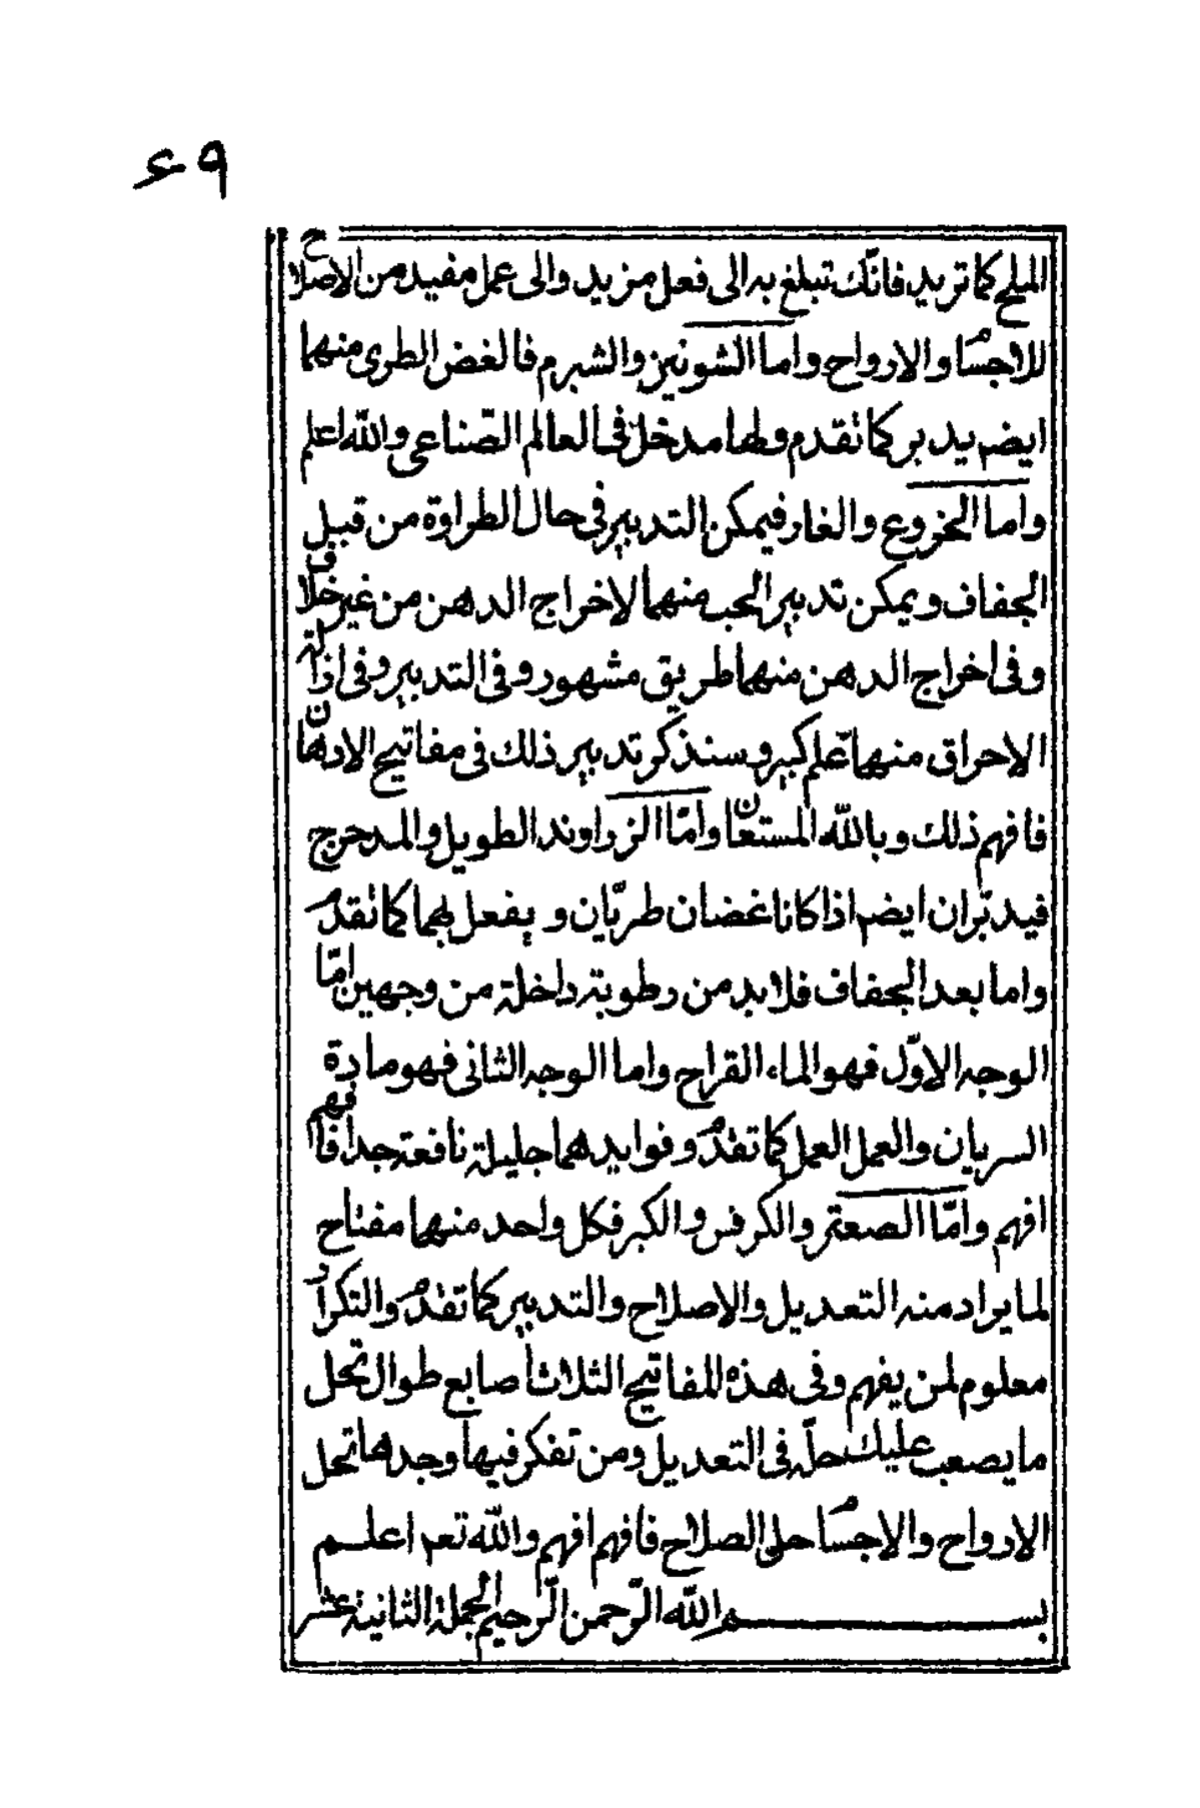 ٤٩
المليح كما تريد فانّك تبلغ به الى فعل مزيد والى عمل مفيد من الاصلاح
للاجسام والارواح واما الشونيز والشبرم فالغض الطرى منهما
ايضم يدبر كما تقدم ولها مدخل فى العالم الصّناعى والله اعلم
واما الخروع والغار فيمكن التدبير فى حال الطراوة من قبيل
الجفاف ويمكن تدبير الحب منهما لاخراج الدهن من غير خلاف
وفى اخراج الدهن منهما طريق مشهور وفى التدبير وفى ازالة
الاحراق منهما علم كبير وسنذكر تدبير ذلك فى مفاتيح الادهان
فافهم ذلك وبالله المستعان وامّا الزراوند الطويل والمدحرج
فيدبّران ايضم اذا كانا غضان طريّان ويفعل بهما كما تقدم
واما بعد الجفاف فلابد من رطوبة داخلة من وجهين امّا
الوجه الاوّل فهو الماء القراح واما الوجه الثانى فهو مادة
السريان والعمل العمل كما تقدم وفوايدهما جليلة نافعة جدا فافهم
افهم وامّا الصعتر والكرفس والكبر فكل واحد منهما مفتاح
لما يراد منه التعديل والاصلاح والتدبير كما تقدم والتكرار
معلوم لمن يفهم وفى هذه المفاتيح الثلاث اصابع طوال تحل
ما يصعب عليك حلّه فى التعديل ومن تفكر فيها وجدها تحل
الارواح والاجسام حلى الصلاح فافهم افهم والله تعم اعلم
بسم الله الرّحمن الرّحيم الجملة الثانية عشر